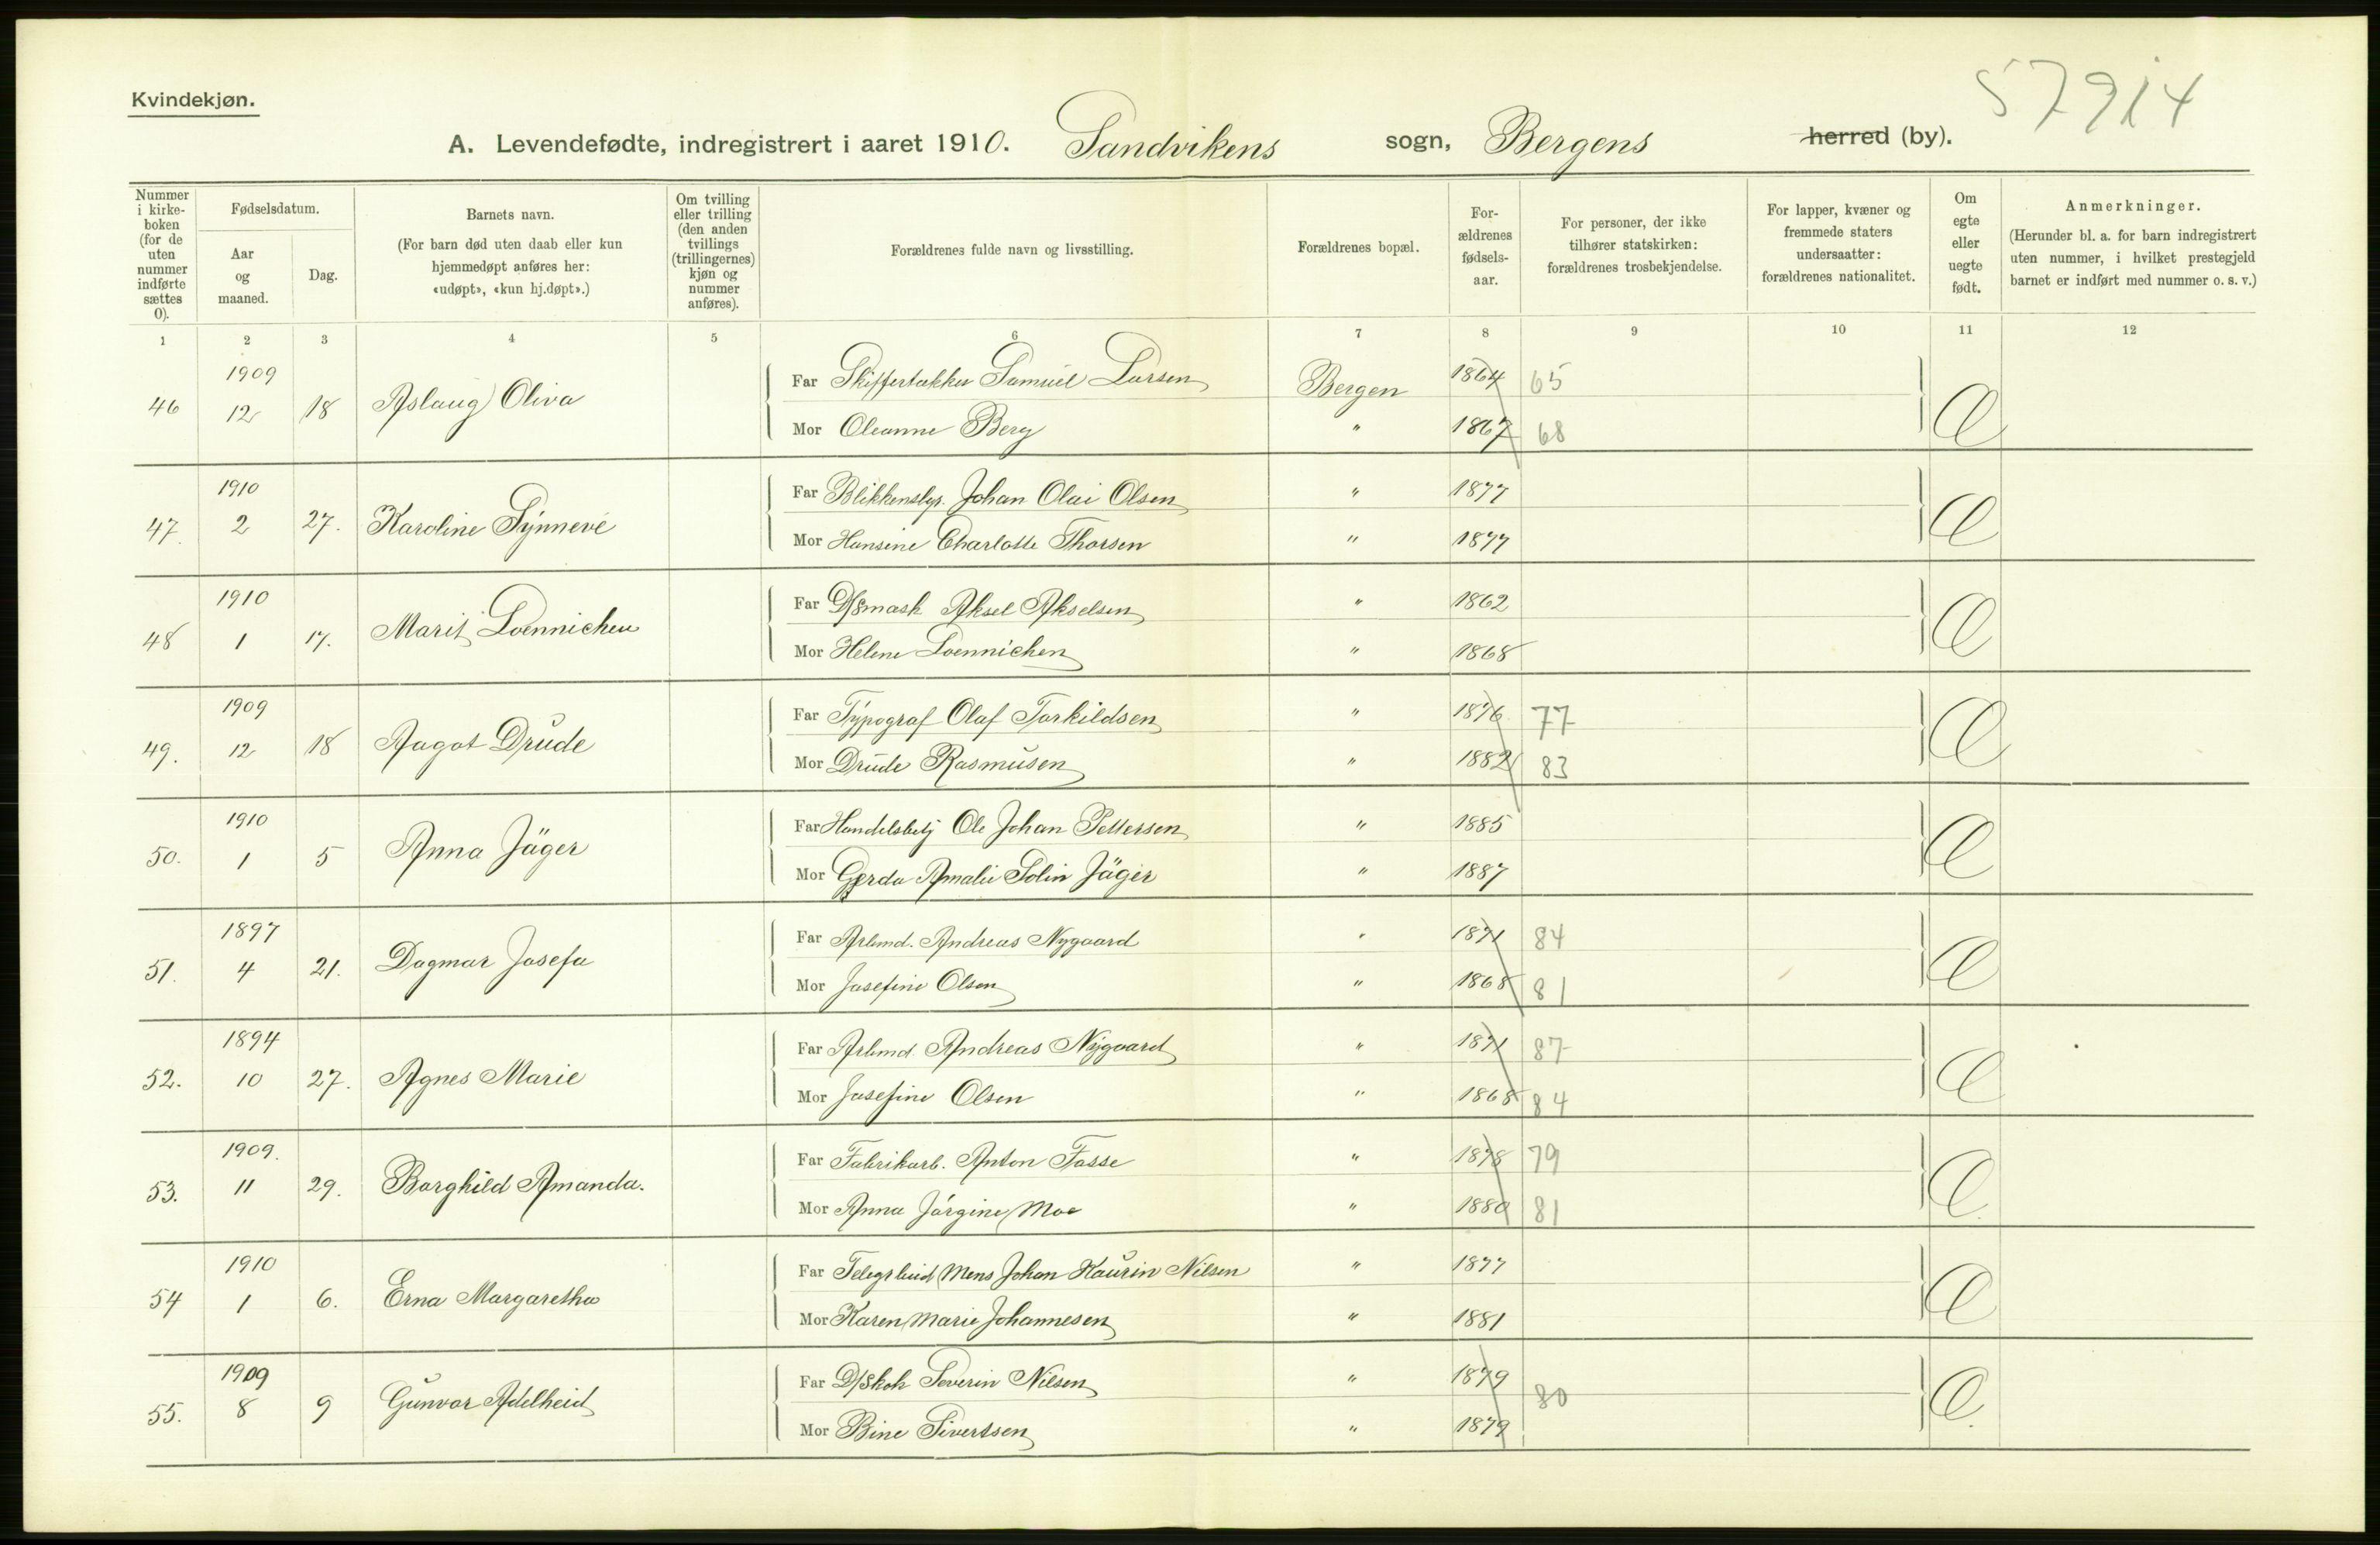 57914
Kvindekjøn.
A. Levendefødte, indregistrert i aaret 1910. Sandvikens sogn, Bergens herred (by).
Nummer i kirke- boken (for de uten nummer indførte sættes 0).
Fødselsdatum.
Aar og maaned.
Dag.
Barnets navn.
(For barn død uten daab eller kun hjemmedøpt anføres her: «udøpt», «kun hj.døpt».)
Om tvilling eller trilling (den anden tvillings (trillingernes) kjøn og nummer anføres).
Forældrenes fulde navn og livsstilling.
Forældrenes bopæl.
For- ældrenes fødsels- aar.
For personer, der ikke tilhører statskirken: forældrenes trosbekjendelse.
For lapper, kvæner og fremmede staters undersaatter: forældrenes nationalitet.
Om egte eller uegte født.
Anmerkninger.
(Herunder bl. a. for barn indregistrert uten nummer, i hvilket prestegjeld barnet er indført med nummer o. s. v.)
1 2 3 4 5 6 7 8 9 10 11 12
46 1909 12 18 Aslaug Oliva Far Skiffertækker Samuel Larsen Bergen 1864 65 E
Mor Oleanne Berg " 1867 68
47. 1910 2 27. Karoline Synneve Far Blikkenslgr. Johan Olai Olsen " 1877 E
Mor Hansine Charlotte Thorsen " 1877
48 1910 1 17. Marit Loennichen Far D/Smask Aksel Akselsen " 1862 E
Mor Helene Loennichen " 1868
49. 1909 12 18 Aagot Drude Far Typograf Olaf Torkildsen " 1876 77 E
Mor Drude Rasmusen " 1882 83
50. 1910 1 5 Anna Jäger Far Handelsbetj Ole Johan Pettersen " 1885 E
Mor Gerda Amalie Solin Jäger " 1887
51. 1897 4 21. Dagmar Josefa Far Arbmd. Andreas Nygaard " 1871 84 E
Mor Josefine Olsen " 1868 81
52. 1894 10 27. Agnes Marie Far Arbmd. Andreas Nygaard " 1871 87 E
Mor Josefine Olsen " 1868 84
53. 1909. 11 29. Borghild Amanda. Far Fabrikarb. Anton Fasse " 1878 79 E
Mor Anna Jørgine Moe " 1880 81
54 1910 1 6. Erna Margaretha Far Telegrbud Mons Johan Kaurin Nilsen " 1877 E
Mor Karen Marie Johannesen " 1881
55. 1909 8 9 Gunvor Adelheid Far D/Skok Severin Nilsen " 1879 80 E
Mor Bine Sivertsen " 1879